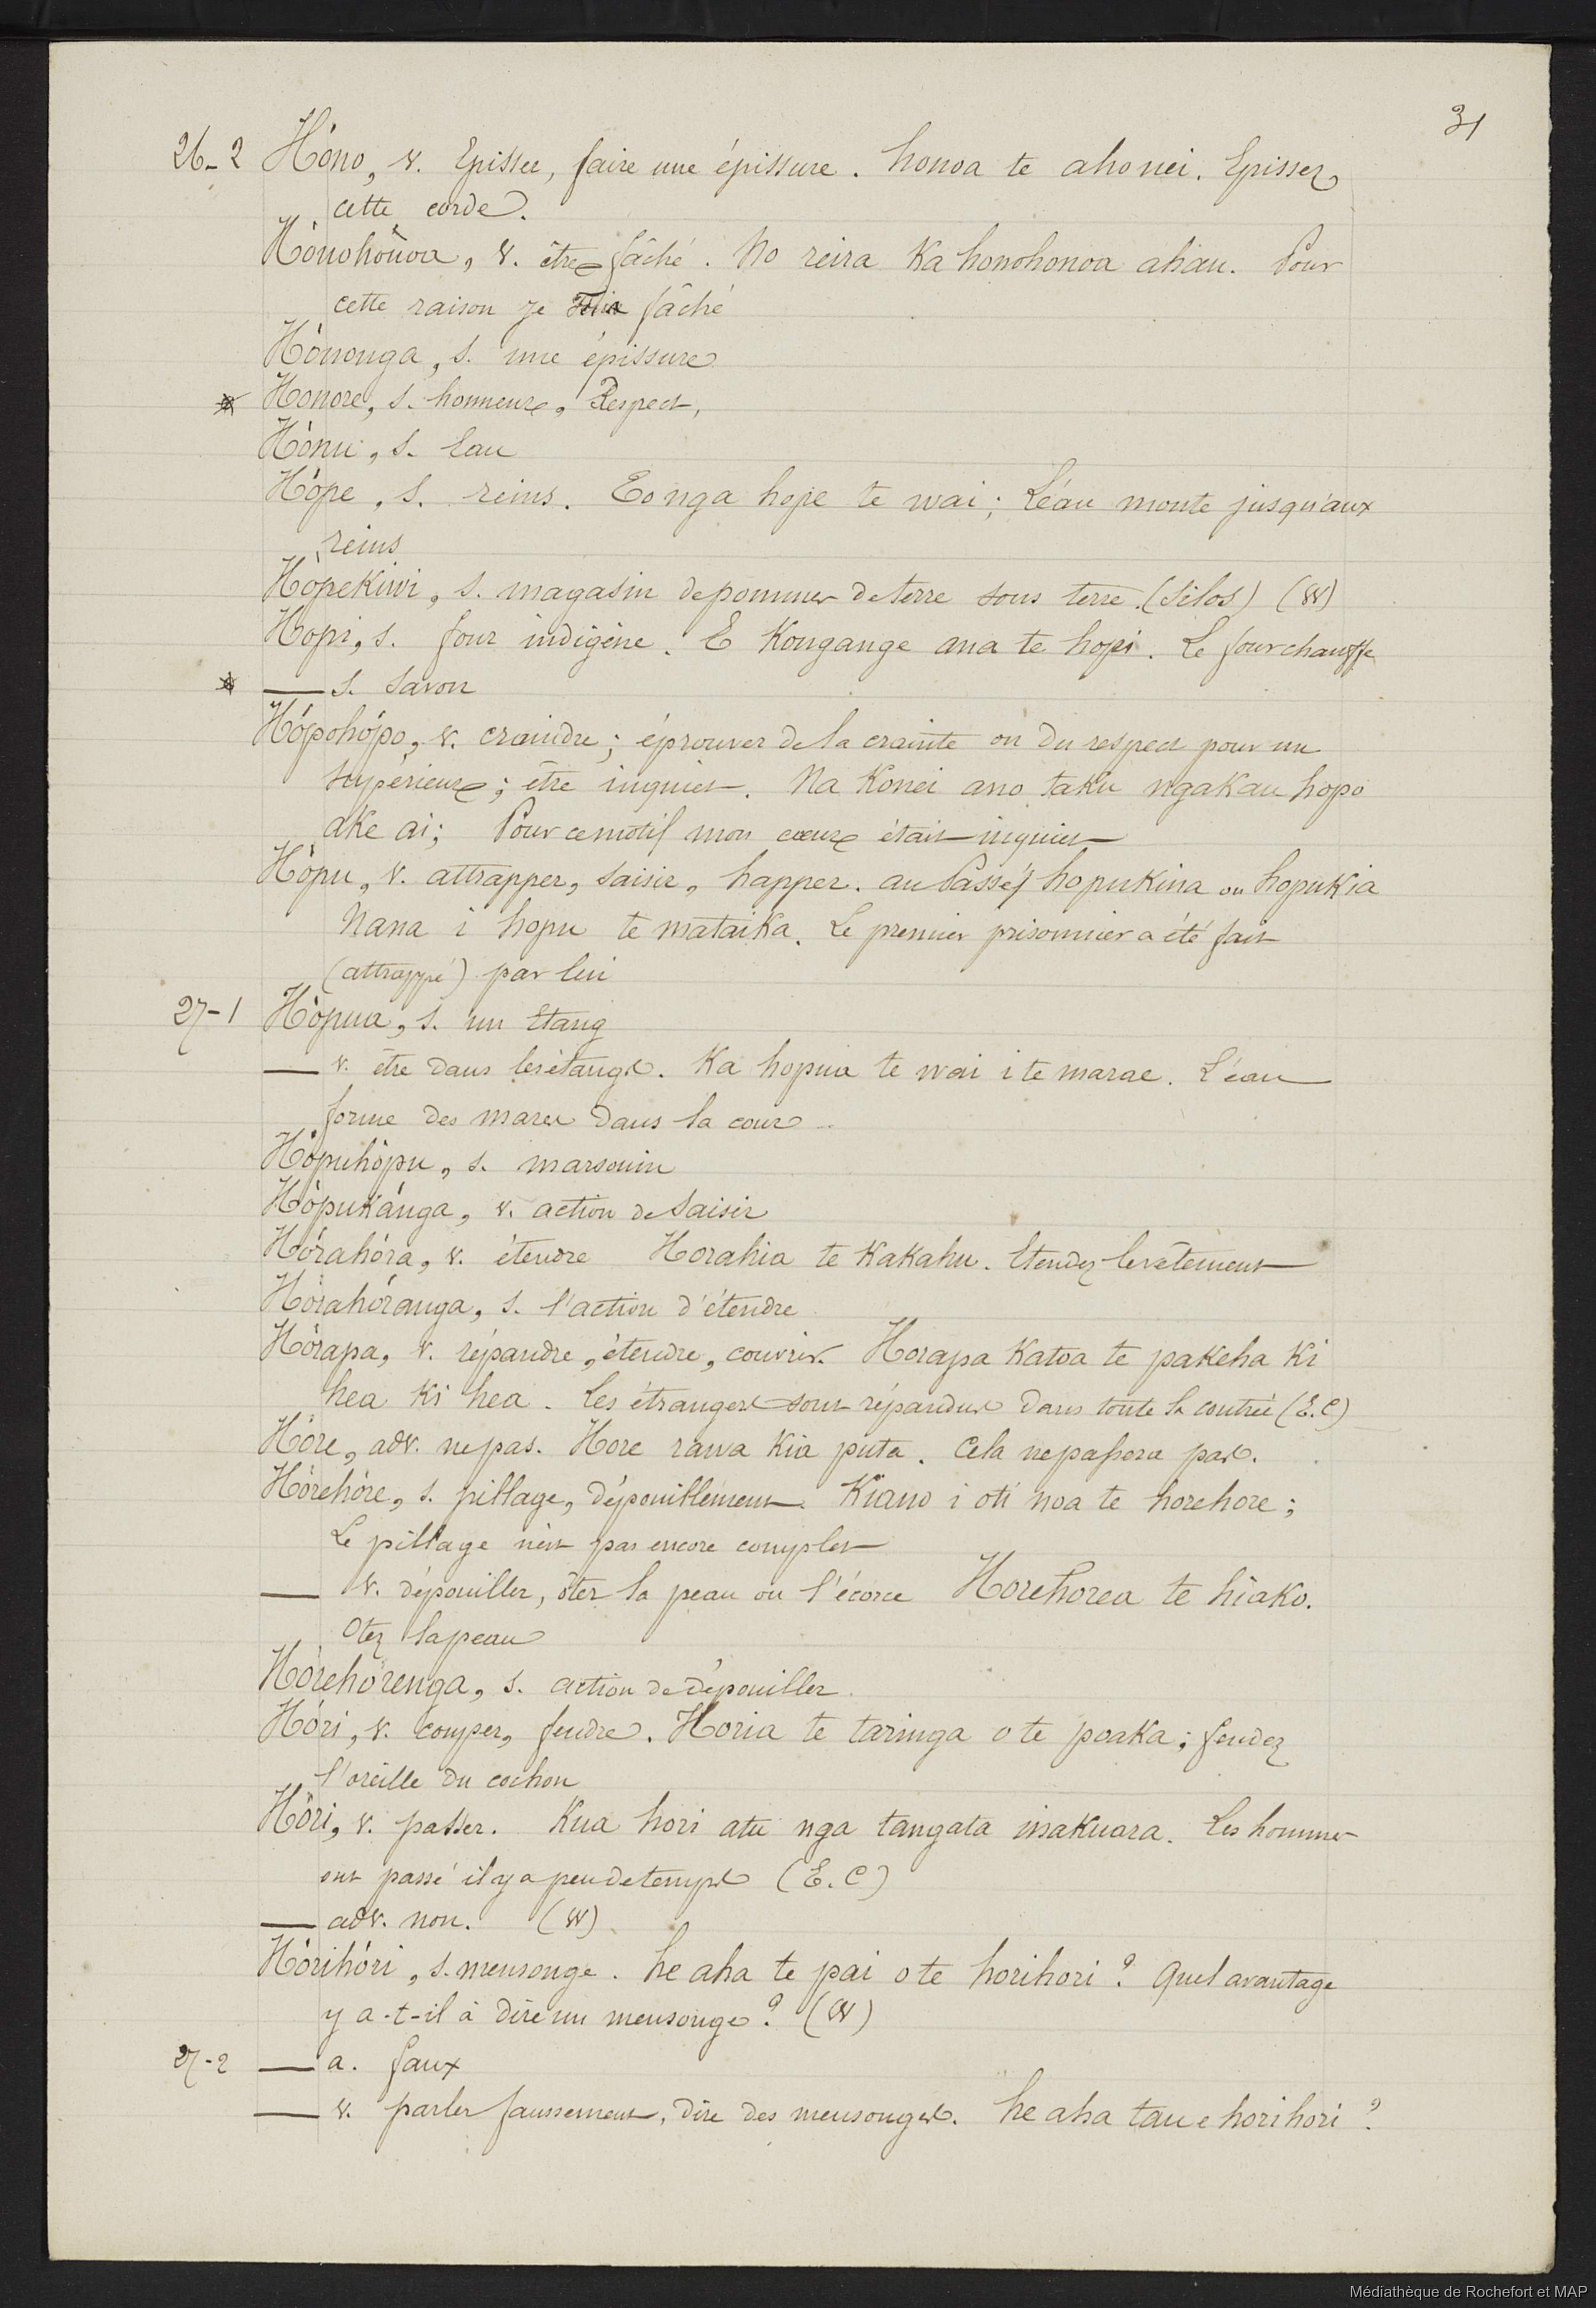 31
26-2 Hóno, v. Episser, faire une épissure. honoa te aho nei. Epissez
cette corde.
Hònohònoa, v. être fâché. No reira Ka honohonoa ahau. Pour
cette raison je fâché
Hònonga, s. une épissure
Honore, s. honneur, Respect,
Hònu, s. Eau
Hòpe, s. reins. Eo nga hope te wai; L'eau monte jusqu'aux
reins
Hòpekiwi, s. magasin de pommes de terre sous terre. (Silos) (W)
Hopi, s. four indigène. E Kongange ana te hopi. Le four chauffe
— s. Savon
Hópohópo, v. craindre; éprouver de la crainte ou du respect pour un
supérieur; être inquiet. Na Konei ano taku ngakau hopo
ake ai; Pour ce motif mon cœur était inquiet
Hòpu, v. attrapper, saisir, happer. au Passé, hopukina ou hopukia
Nana i hopu te mataika. Le premier prisonnier a été fait
(attrappé) par lui
27-1 Hòpua, s. un Etang
— v. être dans les étangs. Ka hopua te wai i te marae. L'eau
forme des mares dans la cour
Hòpuhòpu, s. marsouin
Hòpukánga, v. action de saisir
Hórahóra, v. étendre Horahia te Kakahu. Etendez le vêtement
Hòrahóranga, s. l'action d'étendre
Hòrapa, v. répandre, étendre, couvrir. Horapa Katoa te pakeha Ki
hea Ki hea. Les étrangers sont répandus dans toute la contrée (E.C)
Hòre, adv. ne pas. Hore rawa Kia puta. Cela ne passera pas.
Hórehóre, s. pillage, dépouillement. Kiano i oti noa te horehore;
Le pillage n'est pas encore complet
— v. dépouiller, ôter la peau ou l'écorce Horehorea te hiako.
Otez la peau
Hòrehòrenga, s. action de dépouiller
Hóri, v. couper, fendre. Horia te taringa o te poaka; fendez
l'oreille du cochon
Hòri, v. passer. Kua hori atu nga tangata inakuara. Les hommes
ont passé il y a peu de temps (E.C)
— adv. non. (W)
Hórihóri, s. mensonge. he aha te pai o te horihori? Quel avantage
y a-t-il à dire un mensonge? (W)
27-2 — a. faux
— v. parler faussement, dire des mensonges. he aha tau e horihori?
Médiathèque de Rochefort et MAP